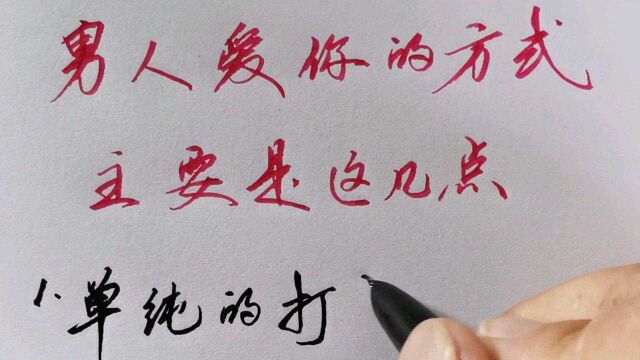 男人爱你的方式
主要是这几点
1.单纯的打